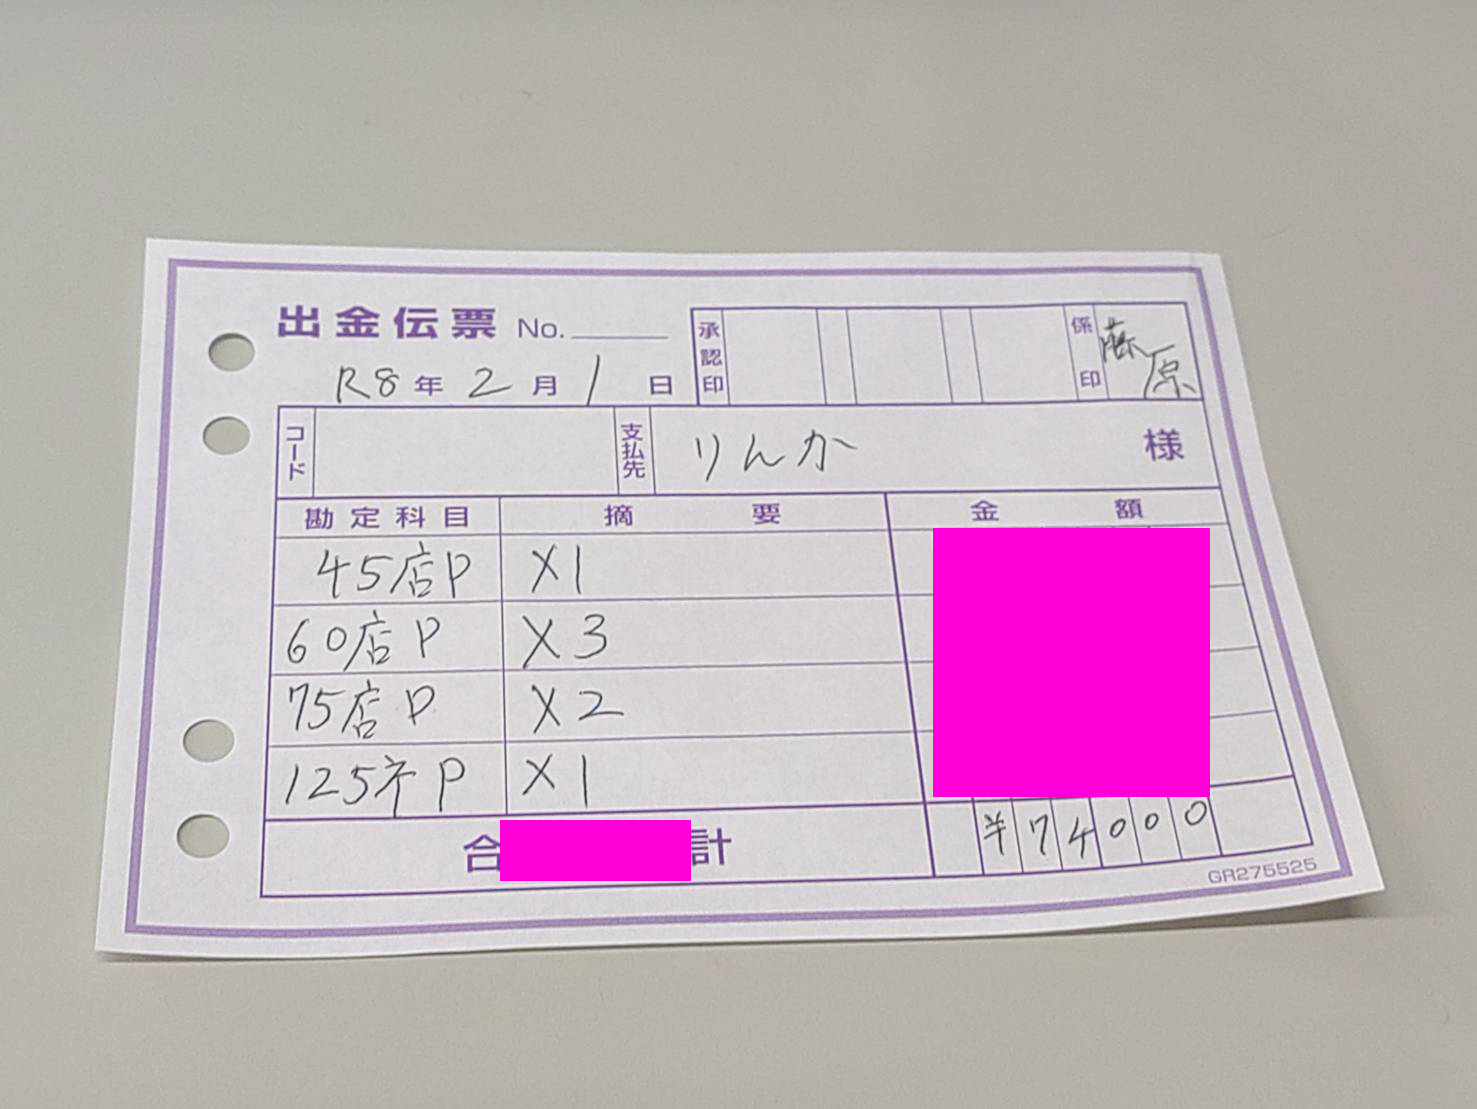 出金伝票 No.
R8年2月1日
承認印
係印 藤原
コード
支払先 りんか 様
勘定科目 摘要 金額
45店P X1
60店P X3
75店P X2
125ネP X1
合計 ¥74000
GR275525